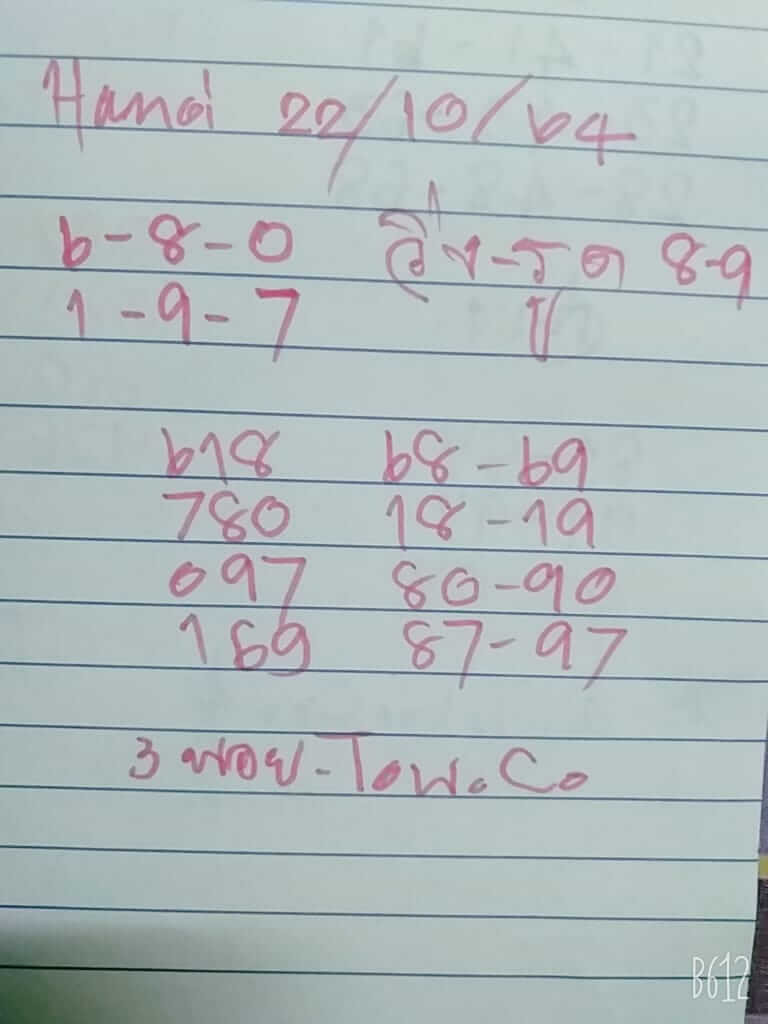 Hanoi 22/10/64
6-8-0 วิ่ง-รูด 8-9
1-9-7
618 68-69
780 18-19
097 80-90
169 87-97
3 พอย-Tow.Co
B612